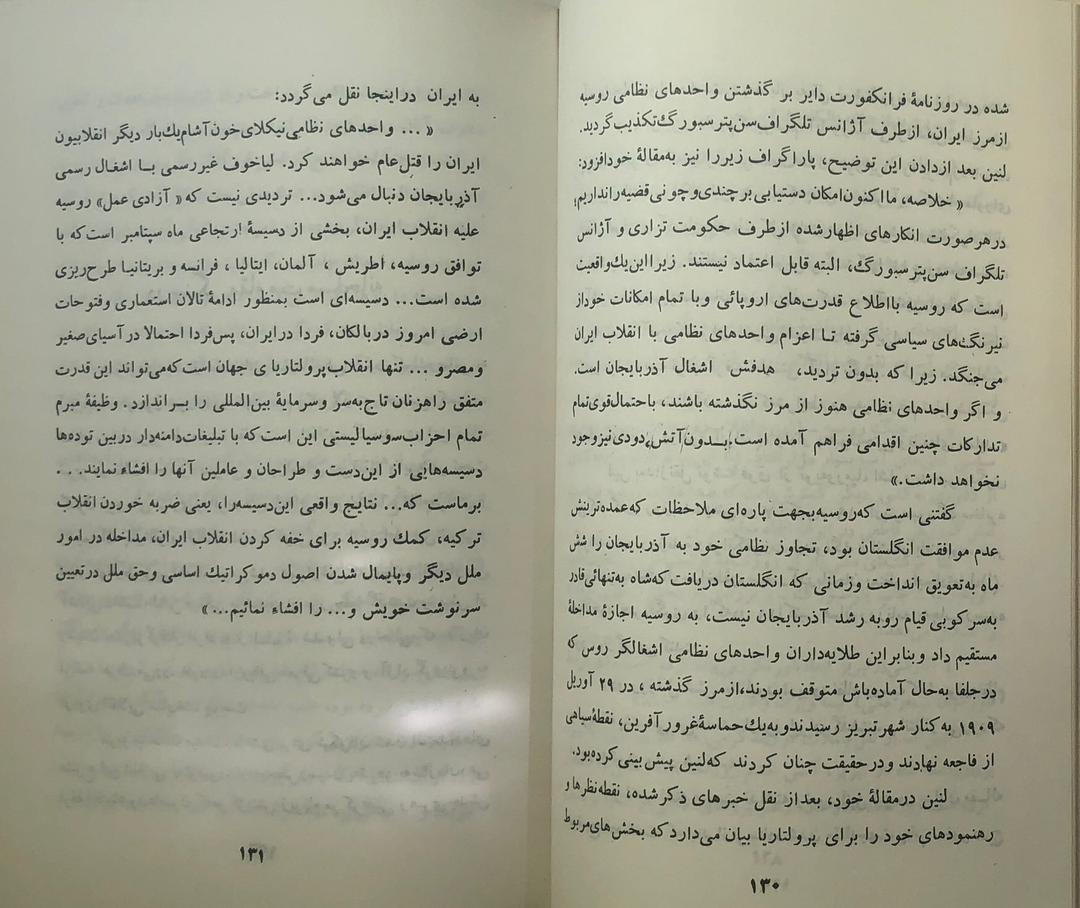 شده در روزنامهٔ فرانکفورت دایر بر گذشتن واحدهای نظامی روسیه
ازمرز ایران، ازطرف آژانس تلگراف سن‌پترسبورگ تکذیب گردید.
لنین بعد ازدادن این توضیح، پاراگراف زیررا نیز به‌مقالهٔ خودافزود:
« خلاصه، ما اکنون امکان دستیابی برچندی‌وچونی قضیه رانداریم؛
درهرصورت انکارهای اظهارشده ازطرف حکومت تزاری و آژانس
تلگراف سن‌پترسبورگ، البته قابل اعتماد نیستند. زیرا این یك واقعیت
است که روسیه بااطلاع قدرت‌های اروپائی وبا تمام امکانات خوداز
نیرنگ‌های سیاسی گرفته تـا اعزام واحدهای نظامی با انقلاب ایران
می‌جنگد. زیرا که بدون تردید، هدفش اشغال آذربایجان است.
و اگر واحدهای نظامی هنوز از مرز نگذشته باشند، با احتمال قوی تمام
تدارکات چنین اقدامی فراهم آمده است. بـدون آتش، دودی نیزوجود
نخواهد داشت.»
گفتنی است که روسیه بجهت پاره‌ای ملاحظات که عمده‌ترینش
عدم موافقت انگلستان بود، تجاوز نظامی خود به آذربایجان را شش
ماه به‌تعویق انداخت وزمانی که انگلستان دریافت که شاه به‌تنهائی قادر
به‌سرکوبی قیام روبه رشد آذربایجان نیست، به روسیه اجازهٔ مداخلهٔ
مستقیم داد وبنابراین طلایه‌داران واحدهای نظامی اشغالگر روس که
درجلفا به‌حال آماده‌باش متوقف بودند، ازمرز گذشته ، در ۲۹ آوریل
۱۹۰۹ به کنار شهر تبریز رسیدند و به‌یك حماسهٔ غرور آفرین، نقطهٔ سیاهی
از فاجعه نهادند ودرحقیقت چنان کردند که لنین پیش بینی کرده بود.
لنین درمقالهٔ خود، بعد از نقل خبرهای ذکر شده، نقطه‌نظرها و
رهنمودهای خود را برای پرولتاریا بیان می‌دارد که بخش‌های مربوط
۱۳۰
به ایران دراینجا نقل می‌گردد:
« ... واحدهای نظامی نیکلای خون‌آشام یك‌بار دیگر انقلابیون
ایران را قتل‌عام خواهند کرد. لیاخوف غیررسمی بـا اشغال رسمی
آذربایجان دنبال می‌شود... تردیدی نیست که « آزادی عمل» روسیه
علیه انقلاب ایران، بخشی از دسیسهٔ ارتجاعی ماه سپتامبر است که با
توافق روسیه، اطریش ، آلمان، ایتالیا ، فرانسه و بریتانیا طرح‌ریزی
شده است... دسیسه‌ای است بمنظور ادامهٔ تالان استعماری وفتوحات
ارضی امروز دربالکان، فردا درایران، پس‌فردا احتمالا در آسیای صغیر
ومصرو ... تنها انقلاب پرولتاریا ی جهان است که می‌تواند این قدرت
متفق راهزنان تاج‌به‌سر وسرمایهٔ بین‌المللی را بـراندازد. وظیفهٔ مبرم
تمام احزاب سوسیالیستی این است که با تبلیغات دامنه‌دار دربین توده‌ها
دسیسه‌هایی از این‌دست و طراحان و عاملین آنها را افشاء نمایند. . .
برماست که... نتایج واقعی این دسیسه‌را، یعنی ضربه خوردن انقلاب
ترکیه، کمك روسیه برای خفه کردن انقلاب ایران، مداخله در امور
ملل دیگر وپایمال شدن اصول دموکراتیك اساسی وحق ملل درتعیین
سرنوشت خویش و... را افشاء نمائیم...»
۱۳۱